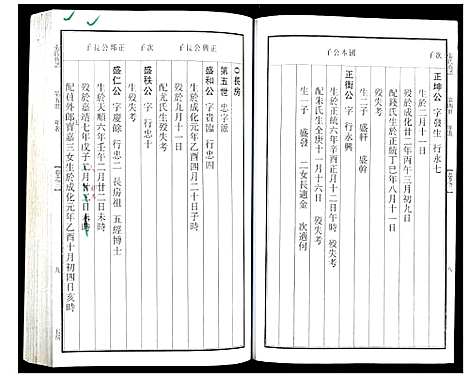 次子
正坤公 字發生 行永七
生於二月十一日
歿於成化廿二年丙午三月初九日
配錢氏生於正統丁巳年八月十一日
歿失考
生二子 盛軒 盛幹
國本公子
正衡公 字 行永興
生於正統六年辛酉正月十二日午時 歿失考
配宋氏生全庚十一月十六日 歿失考
生一子 盛發 二女長適金 次適何
○長房
第五世 忠字派
正興公長子
盛和公 字貴臨 行忠四
生於成化元年乙酉四月二十日子時
歿於九月十一日
配尤氏生於成化 歿失考
生歿失考
次子
盛秩公 字 行忠十
生歿失考
正邦公長子
盛仁公 字慶餘 行忠二 長房祖 五經博士
生於天順六年壬午二月廿二日未時
歿於嘉靖七年戊子 月 日未時
配植外郎寶嘉三女生於成化元年乙酉十月初四日亥時